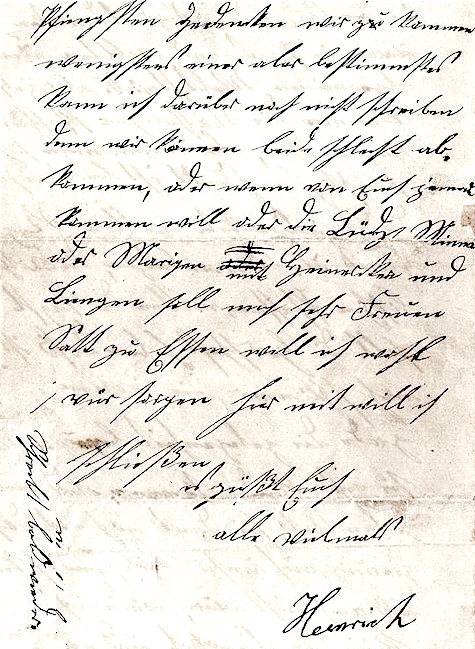 Pfingsten gedenken wir zu kommen
wenigstens einer aber bestimmtes
kann ich darüber noch nicht schreiben
denn wir können beide schlecht ab-
kommen, oder wenn von Euch jemand
kommen will oder die Minna
oder Marigen mit Heinerika und
soll mich sehr Freuen
Satt zu Essen will ich wohl
vür sorgen hier mit will ich
schließen
es grüßt Euch
alle vielmals
Heinrich
Schreibt bald wieder.